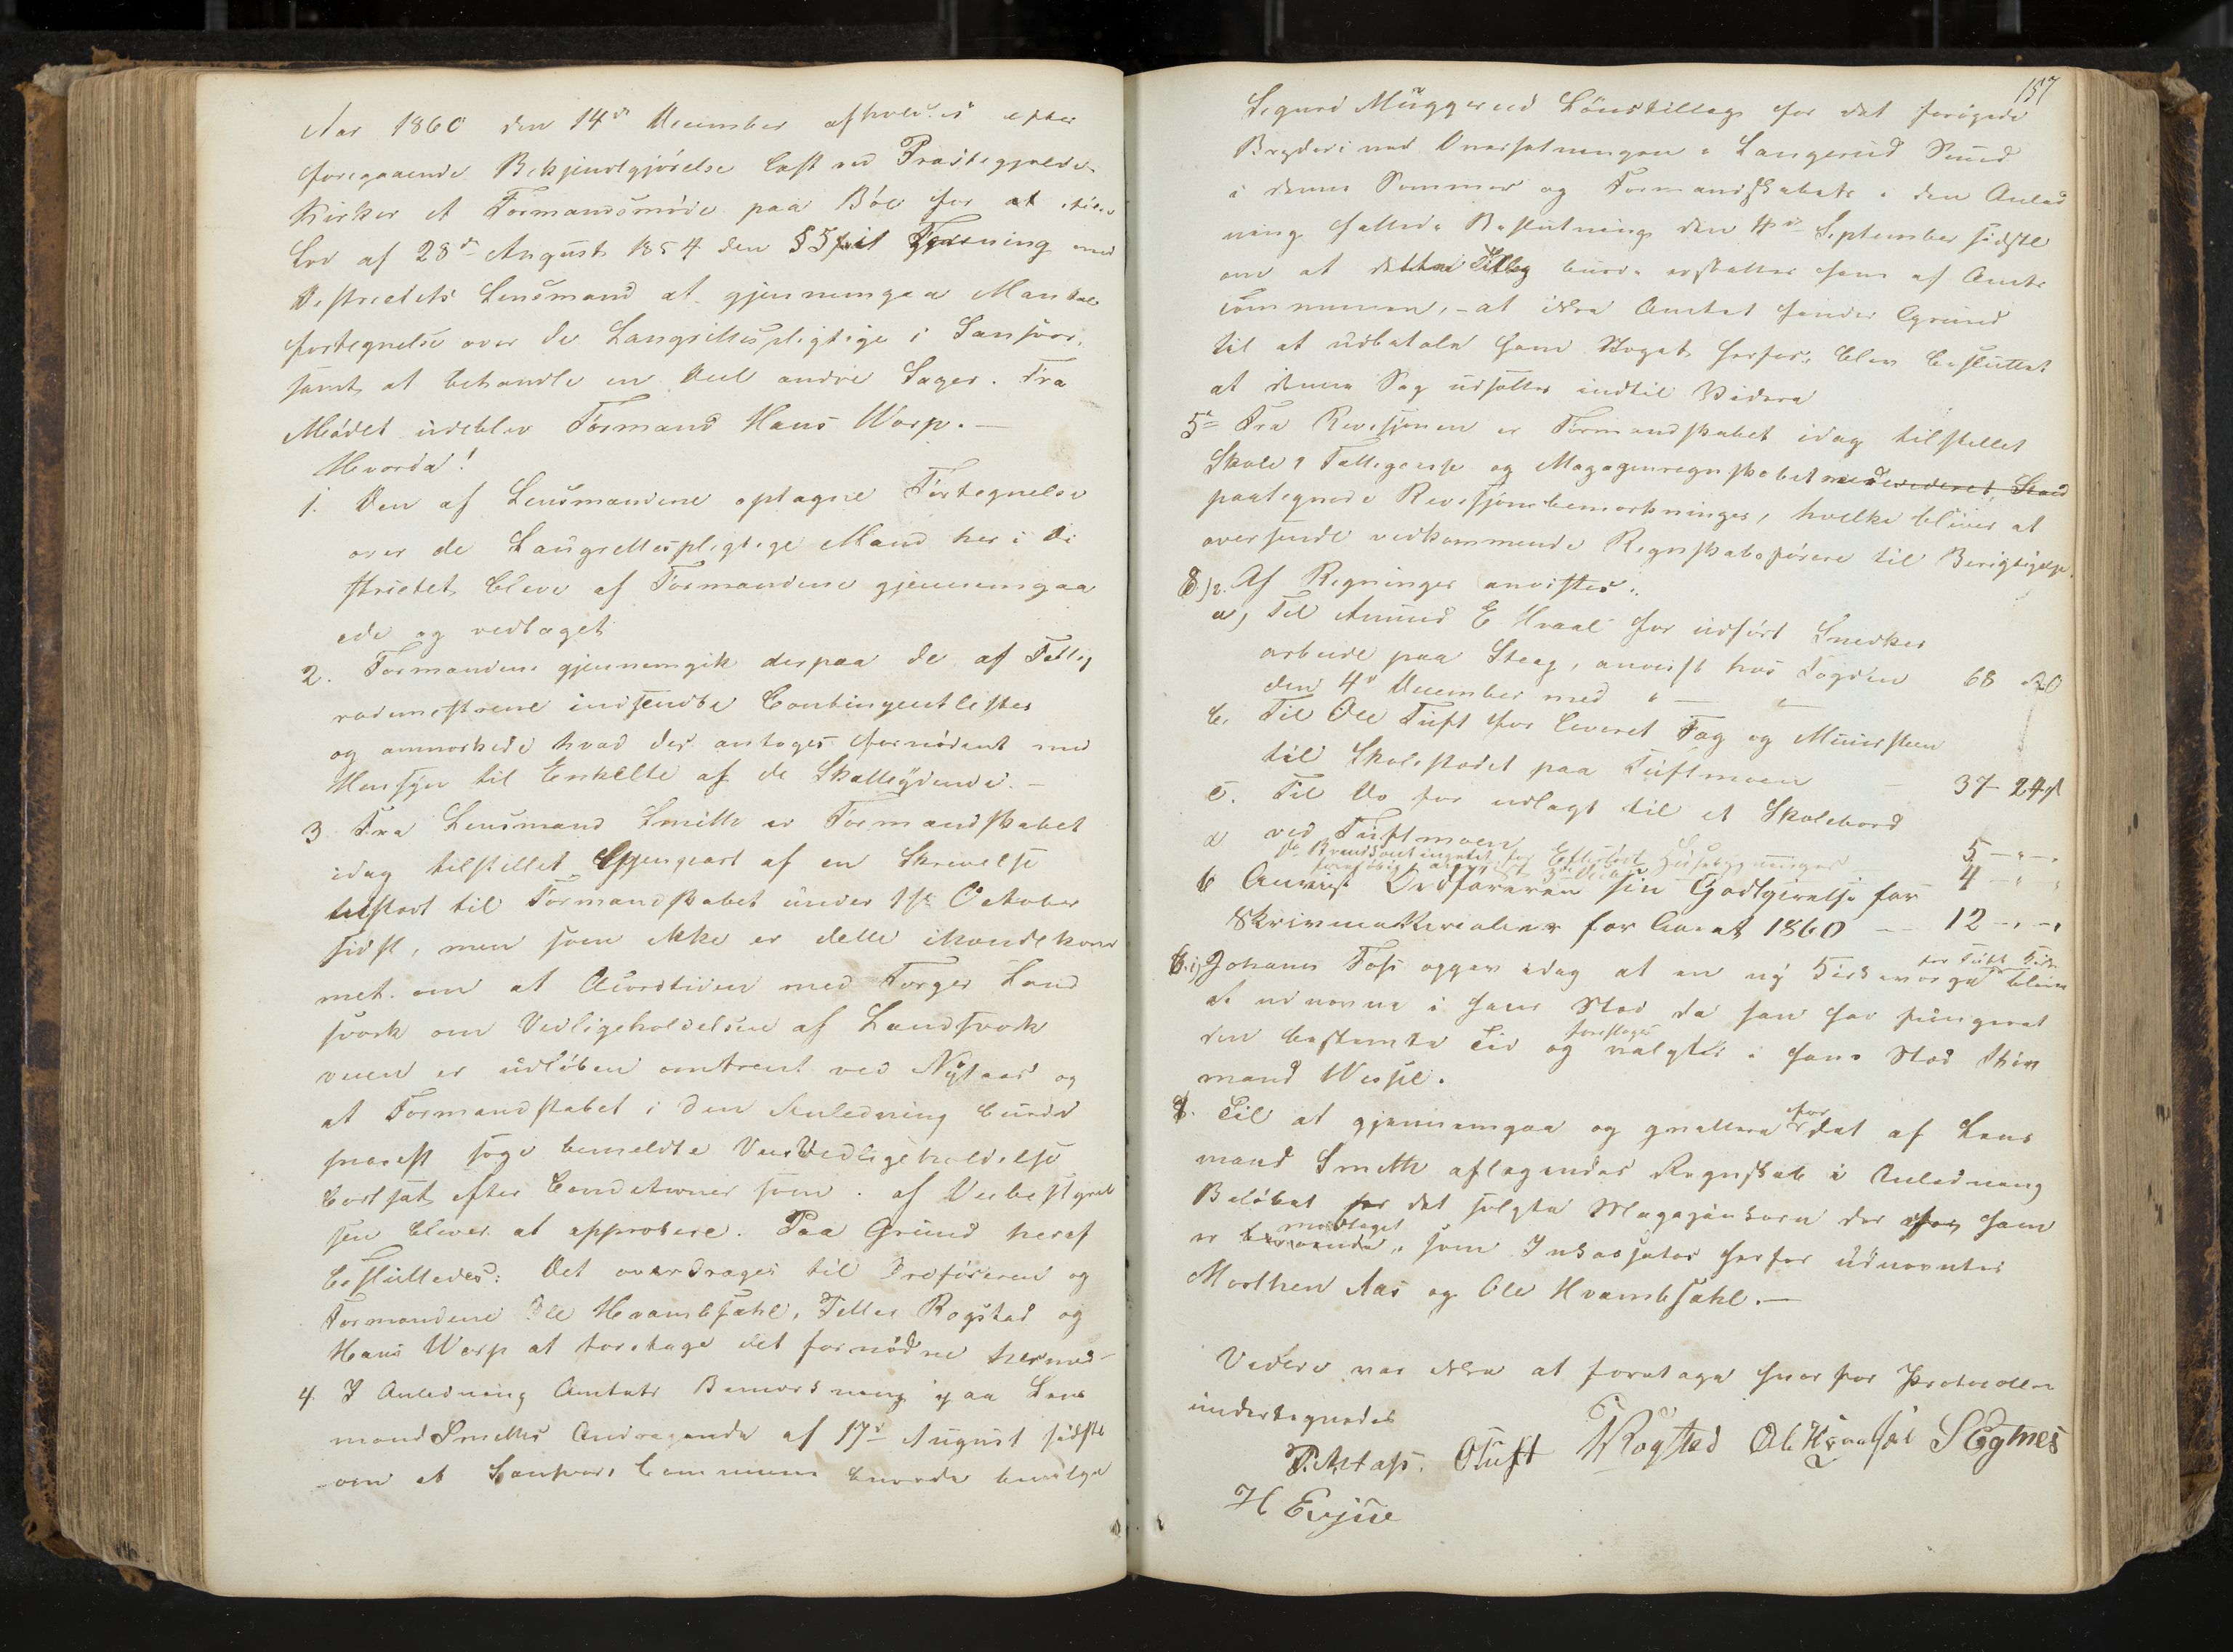 Aar 1860 den 14de December afholdtes efter
foregaaende Bekjendtgjörelse læst ved Præstegjeldets
Kirker et Formandsmöde paa Böe for at
Lov af 28de August 1854 den § 5 med
Destrictets Lensmand at gjennemgaa Mandtals
fortegnelse over de Laugrettespligtige i Sandsvær,
samt at behandle en Deel andre Sager. Fra
Mödet udeblev Formand Hans Worp. —
Hvorda!
1. Den af Lensmandene optagne Fortegnelse
over de Laugrettespligtige Mænd her i Di
strictet bleve af Formændene gjennemgaa
ede og vedtaget
2. Formændene gjennemgik derpaa de af Fattig
rodemestrene indsendte Contingentlister
og anmærkede hvad der antoges fornödent med
Hensyn til Enkelte af de Skatteydende. —
3 Fra Lensmand Smith er Formandskabet
idag tilstillet Gjenpart af en Skrivelse
til Formandskabet under 1ste October
sidst, men som ikke er dette ihændekom
met. om at Accordtiden med Torger Land
sværk om Vedligeholdelsen af Landsværk
veien er udlöben omtrent ved Nytaar og
at Formandskabet i den Anledning burde
snarest söge bemeldte Veis Vedligeholdelse
bortsat efter Conditioner som af Veibestyrel
sen bliver at approbere. Paa Grund heraf
besluttedes: Det overdrages til Ordföreren og
Formændene Ole Hvambsahl, Tollef Rogstad og
Hans Worp at foretage det fornödne herved —
4. I Anledning Amtets Bemærkning paa Lens
mand Smiths Andragende af 17de August sidstl
om at Sandsværs Commune burde bevilge
157
Sigurd Muggerud Lönstillæg for det forögede
Bryderi ved Oversætningen i Langerud Sund
i denne Sommer og Formandskabets i den Anled
ning fattede Beslutning den 4de September sidstl
om at dette Tillæg burde erstattes ham af Amts
communen, - at ikke Amtet finder Grund
til at udbetale ham Noget herfor, blev besluttet
at denne Sag udsættes indtil Videre
5te Fra Revisjonen er Formandskabet idag tilstillet
Skole, Fattigcasse og Magazinregnskabet
paategnede Revisjonsbemærkninger, hvilke bliver at
oversende vedkommende Regnskabsförere til Berigtigelse.
6). Af Regninger anvistes:
a, Til Amund E Hvaal for udfört Snedker
arbeide paa Steeg, anvist hos Fogden 68 20
den 4de December med " — " —
b. Til Ole Tuft for leveret Tag og Muursteen
til Skolestædet paa Tuftmoen — 37 - 24 s
c. Til Do for udlagt til et Skolebord
ved Tuftmoen 5 — " — "
d Bygninger 4 — " "
6 Anvist Ordföreren sin Godtgjörelse for
Skrivmaterialier for Aaret 1860 — 12 — " — "
Johans Foss opgav idag at en ny Kirkeværge for Tuft Kirke bliver
at udnævne i hans Sted da han har fungeret
den bestemte Tid og foresloges valgtes i hans Sted
mand Wessel.
8. Til at gjennemgaa og qvittere for det af Lens
mand Smith aflagendes Regnskab i Anledning
Belöbet for det solgte Magazinkorn der af ham
er modtaget, som Inkassator herfor udnævntes
Morthen Aas og Ole Hvambsahl. —
Videre var ikke at foretage hvorfor Protocollen
undertegnedes
OTuft TRogstad Ole Hvambsal
H Evju